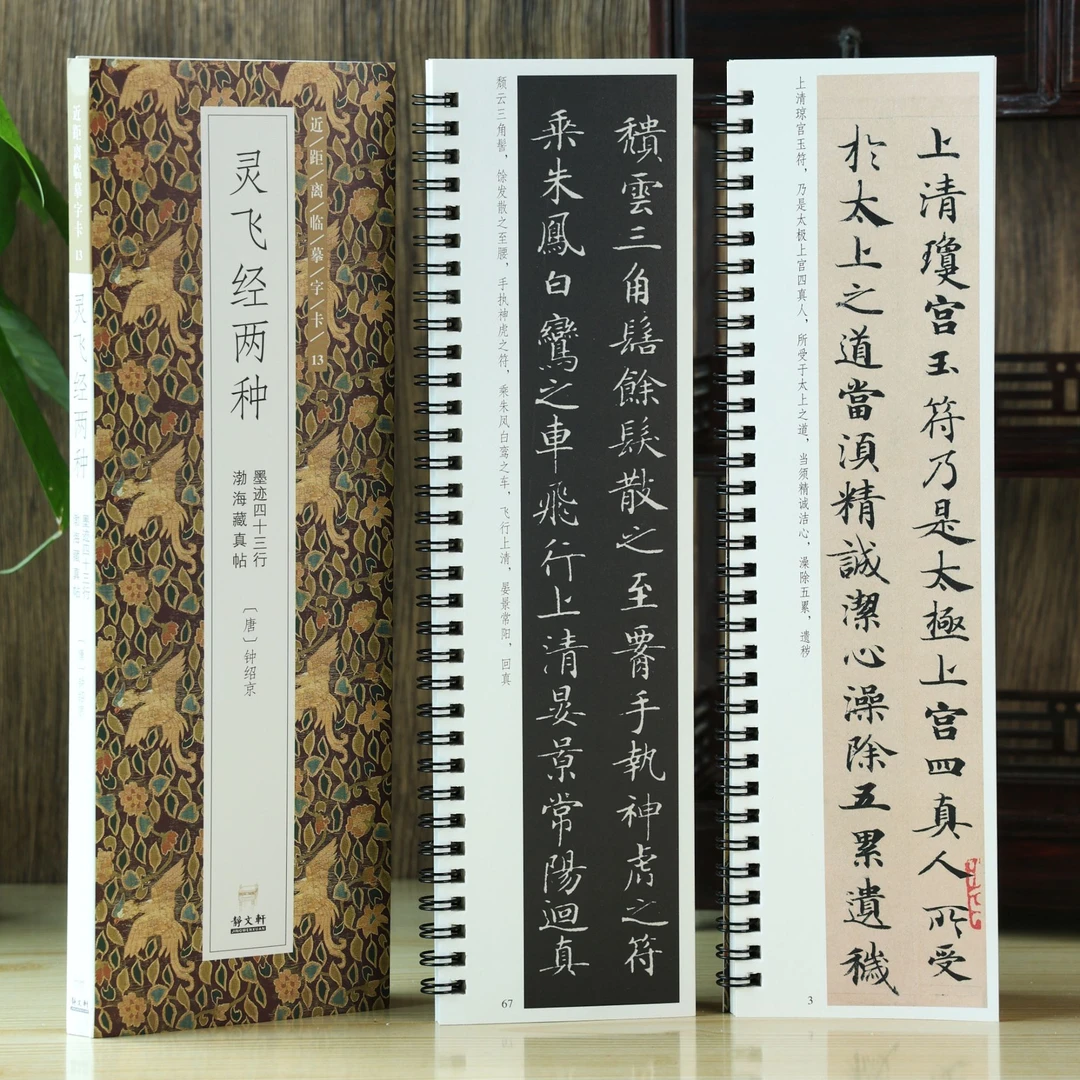 近距离临摹字卡 13
灵飞经两种
墨迹四十三行
渤海藏真帖
静文轩
近/距/离/临/摹/字/卡/ 13
灵飞经两种
墨迹四十三行
渤海藏真帖
〔唐〕钟绍京
靜文軒
頽雲三角髻餘髮散之至腰手執神虎之符
乘朱鳳白鸞之車飛行上清晏景常陽迴真
颓云三角髻，馀发散之至腰，手执神虎之符，乘朱凤白鸾之车，飞行上清，晏景常阳，回真
67
上清瓊宫玉符乃是太極上宫四真人所受
於太上之道當湏精誠潔心澡除五累遺穢
上清琼宫玉符，乃是太极上宫四真人，所受于太上之道，当须精诚洁心，澡除五累，遗秽
3